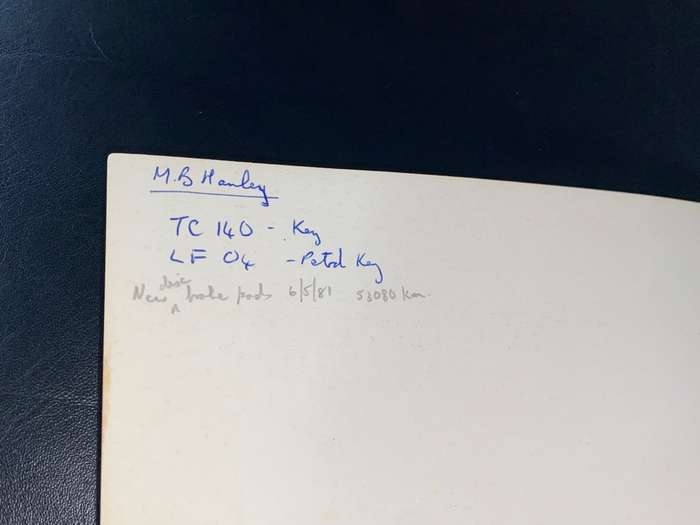 M.B Hanley
TC 140 - Key
LF 04 - Petrol Key
New disc brake pads 6/5/81 53080 Km.